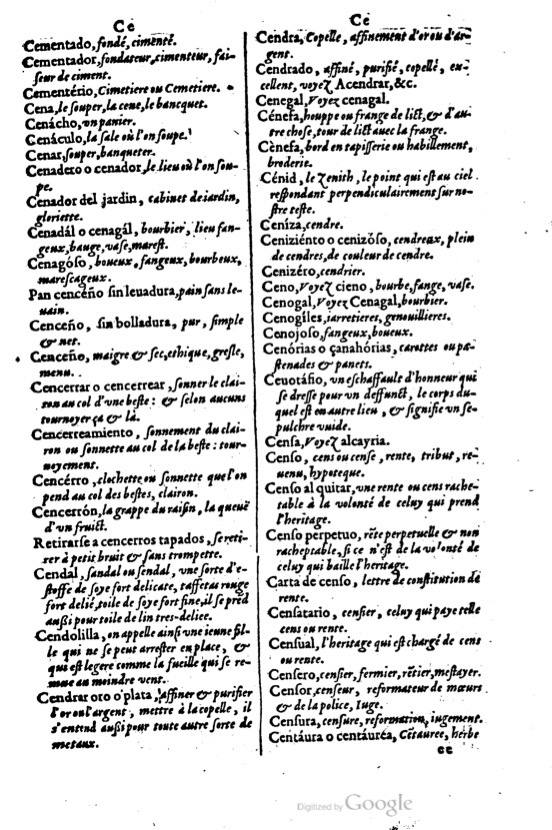 Ce
Cementado, fondé, cimenté.
Cementador, fondateur, cimenteur, fai-
seur de ciment.
Cementério, Cimetiere ou Cemetiere.
Cena, le souper, la cene, le bancquet.
Cenácho, un panier.
Cenáculo, la sale où l'on soupe.
Cenar, souper, banqueter.
Cenadero o cenador, le lieu où l'on sou-
pe.
Cenador del jardin, cabinet de iardin,
gloriette.
Cenadál o cenagál, bourbier, lieu fan-
geux, bauge, vase, marest.
Cenagóso, boueux, fangeux, bourbeux,
marescageux.
Pan cenceño sin leuadura, pain sans le-
uain.
Cenceño, sin bolladura, pur, simple
& net.
Cenceño, maigre & sec, ethique, gresle,
menu.
Cencerrar o cencerrear, sonner le clai-
ron au col d'vne beste: & selon aucuns
tournoyer çà & là.
Cencerreamiento, sonnement du clai-
ron ou sonnette au col de la beste: tour-
noyement.
Cencérro, clochette ou sonnette que l'on
pend au col des bestes, clairon.
Cencerrón, la grappe du raisin, la queuë
d'vn fruict.
Retirarse a cencerros tapados, se reti-
rer à petit bruit & sans trompette.
Cendal, sandal ou sendal, vne sorte d'e-
stoffe de soye fort delicate, taffetas rouge
fort delié, toile de soye fort fine, il se prẽd
außi pour toile de lin tres-delice.
Cendolilla, on appelle ainsi vne ieune fil-
le qui ne se peut arrester en place, &
qui est legere comme la fueille qui se re-
mue au moindre vent.
Cendrar oro o plata, affiner & purifier
l'or ou l'argent, mettre à la copelle, il
s'entend außi pour toute autre sorte de
metaux.
Ce
Cendra, Copelle, affinement d'or ou d'ar-
gent.
Cendrado, affiné, purifié, copellé, ex-
cellent, voyez Acendrar, &c.
Cenegal, Voyez cenagal.
Cénefa, houppe ou frange de lict, & d'au-
tre chose, tour de lict auec la frange.
Cènefa, bord en tapisserie ou habillement,
broderie.
Cénid, le Zenith, le point qui est au ciel
respondant perpendiculairement sur no-
stre teste.
Ceniza, cendre.
Ceniziénto o cenizóso, cendreux, plein
de cendres, de couleur de cendre.
Cenizéro, cendrier.
Ceno, Voyez cieno, bourbe, fange, vase.
Cenogal, Voyez Cenagal, bourbier.
Cenogíles, iarretieres, genouillieres.
Cenojoso, fangeux, boueux.
Cenórias o çanahórias, carottes ou pa-
stenades & panets.
Ceuotáfio, vn eschaffault d'honneur qui
se dresse pour vn deffunct, le corps du-
quel est en autre lieu, & signifie vn se-
pulchre vuide.
Censa, Voyez alcayria.
Censo, cens ou cense, rente, tribut, re-
uenu, hypoteque.
Censo al quitar, vne rente ou cens rache-
table à la volonté de celuy qui prend
l'heritage.
Censo perpetuo, rẽte perpetuelle & non
racheptable, si ce n'est de la volonté de
celuy qui baille l'heritage.
Carta de censo, lettre de constitution de
rente.
Censatario, censier, celuy qui paye telle
cens ou rente.
Censual, l'heritage qui est chargé de cens
ou rente.
Censero, censier, fermier, rẽtier, mestayer.
Censor, censeur, reformateur de mœurs
& de la police, Iuge.
Censura, censure, reformation, iugement.
Centáura o centáuréa, Cẽtauree, herbe
ee
Digitized by Google